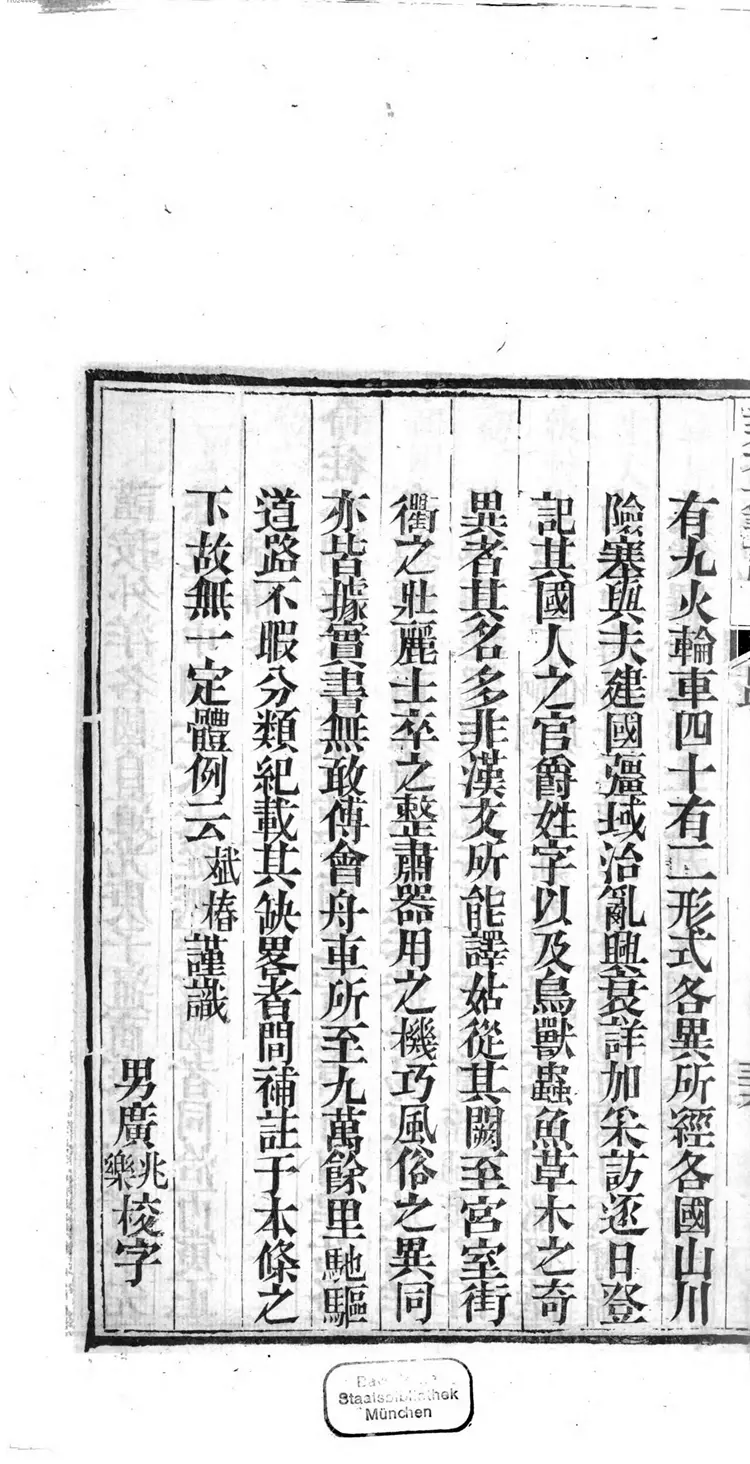 有九火輪車四十有二形式各異所經各國山川
險塞與夫建國疆域治亂興衰詳加采訪逐日登
記其國人之官爵姓字以及鳥獸蟲魚草木之奇
異者其名多非漢文所能譯姑從其闕至宮室街
衢之壯麗士卒之整肅器用之機巧風俗之異同
亦皆據實書無敢傅會舟車所至九萬餘里馳驅
道路不暇分類紀載其缺畧者間補註于本條之
下故無一定體例云斌椿謹識
男廣兆樂校字
Staatsbibliothek
München